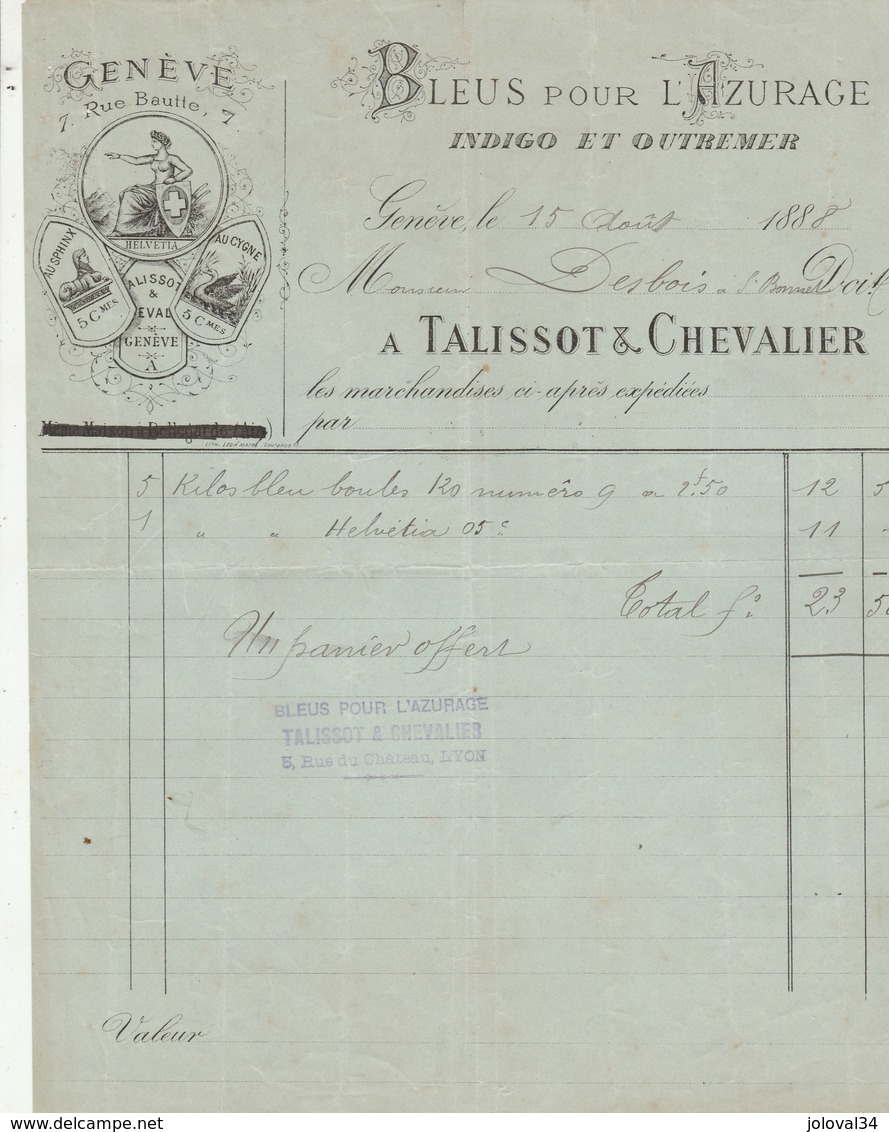 GENÈVE
7. Rue Bautte, 7.
HELVETIA
AU SPHINX
5 CMES
AU CYGNE
5 CMES
TALISSOT
&
GENÈVE
A
LITH. LEON MAIRE
BLEUS POUR L'AZURAGE
INDIGO ET OUTREMER
Genève, le 15 Août 1888
Monsieur Desbois à St Bonnet Doit
A TALISSOT & CHEVALIER
les marchandises ci-après expédiées
par
5 Kilos bleu boules K0 numéro 9 a 2f.50 12 5
1 " " Helvétia 05c 11 -
Total fs. 23 50
Un panier offert
BLEUS POUR L'AZURAGE
TALISSOT & CHEVALIER
5, Rue du Château, LYON
Valeur
www.delcampe.net
joloval34